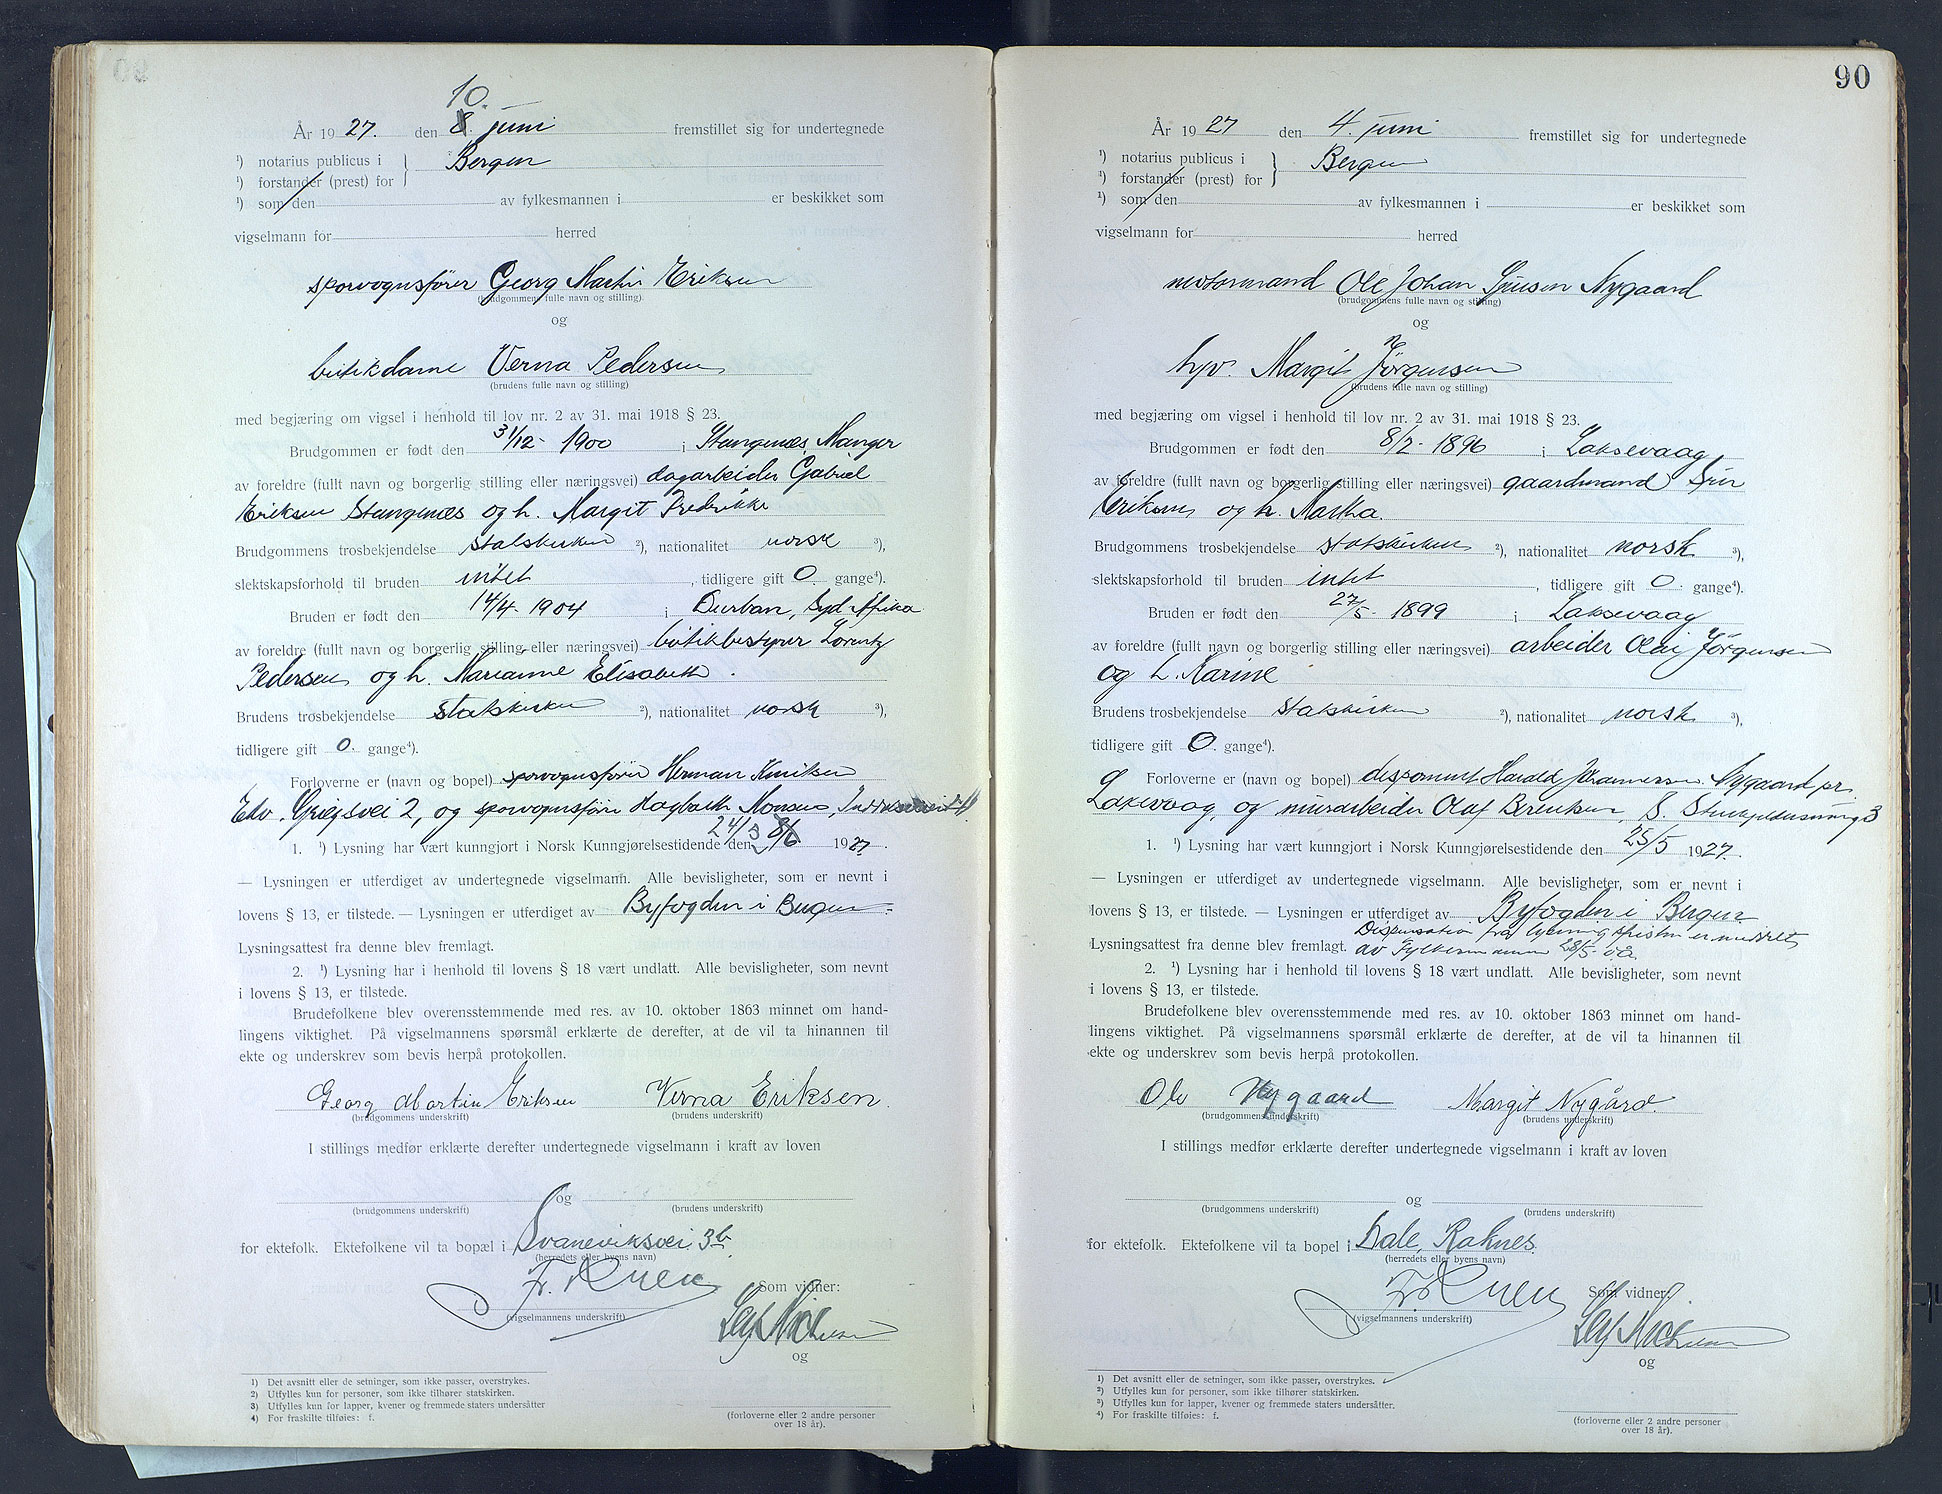 10.
År 1927. den 8. juni fremstillet sig for undertegnede
¹) notarius publicus i } Bergen
¹) forstander (prest) for
¹) som den av fylkesmannen i er beskikket som
vigselmann for herred
sporvognsfører Georg Martin Eriksen
(brudgommens fulle navn og stilling)
og
butikdame Verna Pedersen
(brudens fulle navn og stilling)
med begjæring om vigsel i henhold til lov nr. 2 av 31. mai 1918 § 23.
Brudgommen er født den 31/12 - 1900 i Stangenæs, Manger
av foreldre (fullt navn og borgerlig stilling eller næringsvei) dagarbeider Gabriel
Eriksen Stangenæs og h. Margit Fredrikke
Brudgommens trosbekjendelse statskirken ²), nationalitet norsk ³),
slektskapsforhold til bruden intet, tidligere gift 0. gange⁴).
Bruden er født den 14/4 - 1904 i Durban, Syd Afrika
av foreldre (fullt navn og borgerlig stilling eller næringsvei) butikbestyrer Lorentz
Pedersen og h. Marianne Elisabeth.
Brudens trosbekjendelse statskirken ²), nationalitet norsk ³),
tidligere gift 0. gange⁴).
Forloverne er (navn og bopel) sporvognsfører Herman Knutsen
Edv. Griegsvei 2, og sporvognsfører Hagbarth Monsen,
24/3
1. ¹) Lysning har vært kunngjort i Norsk Kunngjørelsestidende den 8/6 1927.
— Lysningen er utferdiget av undertegnede vigselmann. Alle bevisligheter, som er nevnt i
lovens § 13, er tilstede. — Lysningen er utferdiget av Byfogden i Bergen.
Lysningsattest fra denne blev fremlagt.
2. ¹) Lysning har i henhold til lovens § 18 vært undlatt. Alle bevisligheter, som nevnt
i lovens § 13, er tilstede.
Brudefolkene blev overensstemmende med res. av 10. oktober 1863 minnet om hand-
lingens viktighet. På vigselmannens spørsmål erklærte de derefter, at de vil ta hinannen til
ekte og underskrev som bevis herpå protokollen.
Georg Martin Eriksen Verna Eriksen
(brudgommens underskrift) (brudens underskrift)
I stillings medfør erklærte derefter undertegnede vigselmann i kraft av loven
og
(brudgommens underskrift) (brudens underskrift)
for ektefolk. Ektefolkene vil ta bopæl i Svaneviksvei 3b
(herredets eller byens navn)
Som vidner:
(vigselmannens underskrift)
og
1) Det avsnitt eller de setninger, som ikke passer, overstrykes.
2) Utfylles kun for personer, som ikke tilhører statskirken.
3) Utfylles kun for lapper, kvener og fremmede staters undersåtter
4) For fraskilte tilføies: f.
(forloverne eller 2 andre personer
over 18 år).
90
År 1927 den 4. juni fremstillet sig for undertegnede
¹) notarius publicus i } Bergen
¹) forstander (prest) for
¹) som den av fylkesmannen i er beskikket som
vigselmann for herred
motormand Ole Johan Sjursen Nygaard
(brudgommens fulle navn og stilling)
og
hpv. Margit Jørgensen
(brudens fulle navn og stilling)
med begjæring om vigsel i henhold til lov nr. 2 av 31. mai 1918 § 23.
Brudgommen er født den 8/2 - 1896 i Laksevaag
av foreldre (fullt navn og borgerlig stilling eller næringsvei) gaardmand Sjur
Eriksen og h. Martha.
Brudgommens trosbekjendelse statskirken ²), nationalitet norsk ³),
slektskapsforhold til bruden intet, tidligere gift 0 gange⁴).
Bruden er født den 27/5 - 1899 i Laksevaag
av foreldre (fullt navn og borgerlig stilling eller næringsvei) arbeider Olai Jørgensen
og h. Karine
Brudens trosbekjendelse statskirken ²), nationalitet norsk ³),
tidligere gift 0. gange⁴).
Forloverne er (navn og bopel) disponent Harald Johannessen Nygaard pr.
Laksevaag, og murarbeider Olaf Berentsen, 3
1. ¹) Lysning har vært kunngjort i Norsk Kunngjørelsestidende den 25/5 1927.
— Lysningen er utferdiget av undertegnede vigselmann. Alle bevisligheter, som er nevnt i
lovens § 13, er tilstede. — Lysningen er utferdiget av Byfogden i Bergen.
Dispensation fra lysningsfristen er meddelt
Lysningsattest fra denne blev fremlagt. av Fylkesmannen 28/5 d.å.
2. ¹) Lysning har i henhold til lovens § 18 vært undlatt. Alle bevisligheter, som nevnt
i lovens § 13, er tilstede.
Brudefolkene blev overensstemmende med res. av 10. oktober 1863 minnet om hand-
lingens viktighet. På vigselmannens spørsmål erklærte de derefter, at de vil ta hinannen til
ekte og underskrev som bevis herpå protokollen.
Ole Nygaard Margit Nygård.
(brudgommens underskrift) (brudens underskrift)
I stillings medfør erklærte derefter undertegnede vigselmann i kraft av loven
og
(brudgommens underskrift) (brudens underskrift)
for ektefolk. Ektefolkene vil ta bopel i Dale, Raknes
(herredets eller byens navn)
Som vidner:
(vigselmannens underskrift)
og
1) Det avsnitt eller de setninger, som ikke passer, overstrykes.
2) Utfylles kun for personer, som ikke tilhører statskirken.
3) Utfylles kun for lapper, kvener og fremmede staters undersåtter.
4) For fraskilte tilføies: f.
(forloverne eller 2 andre personer
over 18 år).